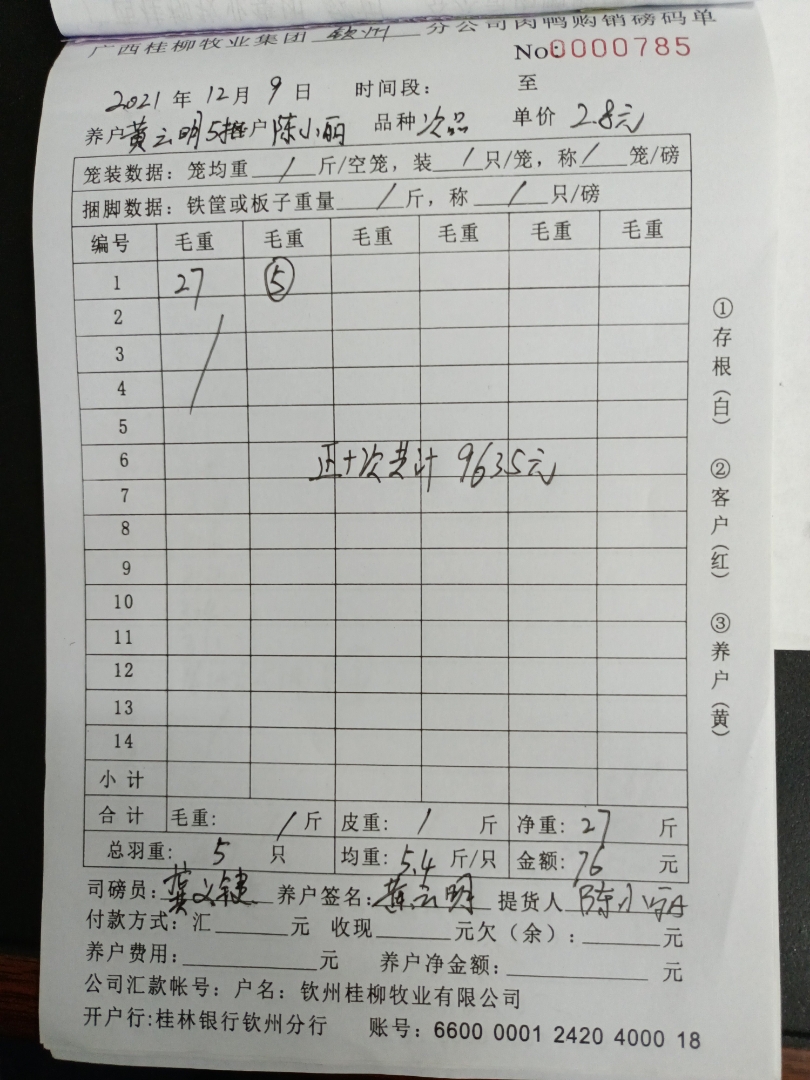 广西桂柳牧业集团 钦州 分公司肉鸭购销磅码单
No:0000785
2021 年 12 月 9 日 时间段: 至
养户 黄云明 户 陈小丽 品种 次品 单价 2.8元
笼装数据: 笼均重 / 斤/空笼, 装 / 只/笼, 称 / 笼/磅
捆脚数据: 铁筐或板子重量 / 斤, 称 / 只/磅
编号 毛重 毛重 毛重 毛重 毛重 毛重
1 27 5
2
3
4
5
6
正+次共计 9635元
7
8
9
10
11
12
13
14
小计
合计 毛重: / 斤 皮重: / 斤 净重: 27 斤
总羽重: 5 只 均重: 5.4 斤/只 金额: 76 元
司磅员: 龚义键 养户签名: 黄云明 提货人 陈小丽
付款方式: 汇 元 收现 元欠(余): 元
养户费用: 元 养户净金额: 元
公司汇款帐号: 户名: 钦州桂柳牧业有限公司
开户行:桂林银行钦州分行 账号: 6600 0001 2420 4000 18
①存根(白) ②客户(红) ③养户(黄)